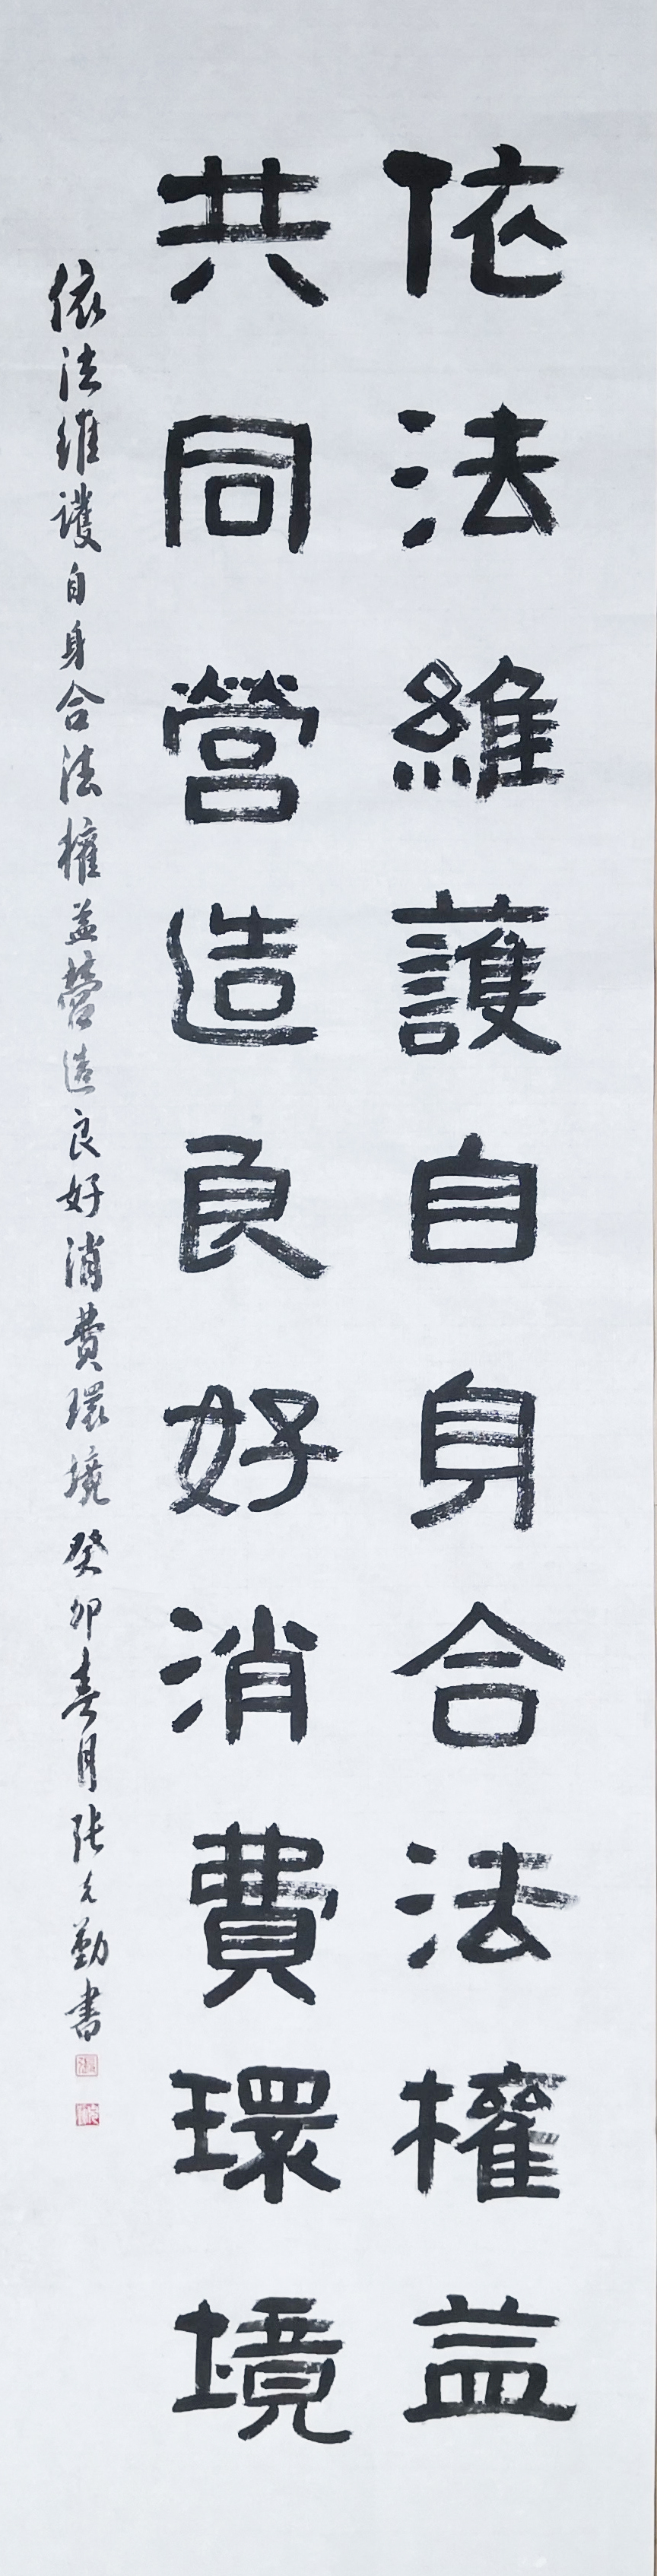 依法維護自身合法權益
共同營造良好消費環境
依法維護自身合法權益營造良好消費環境癸卯春月张克勤書